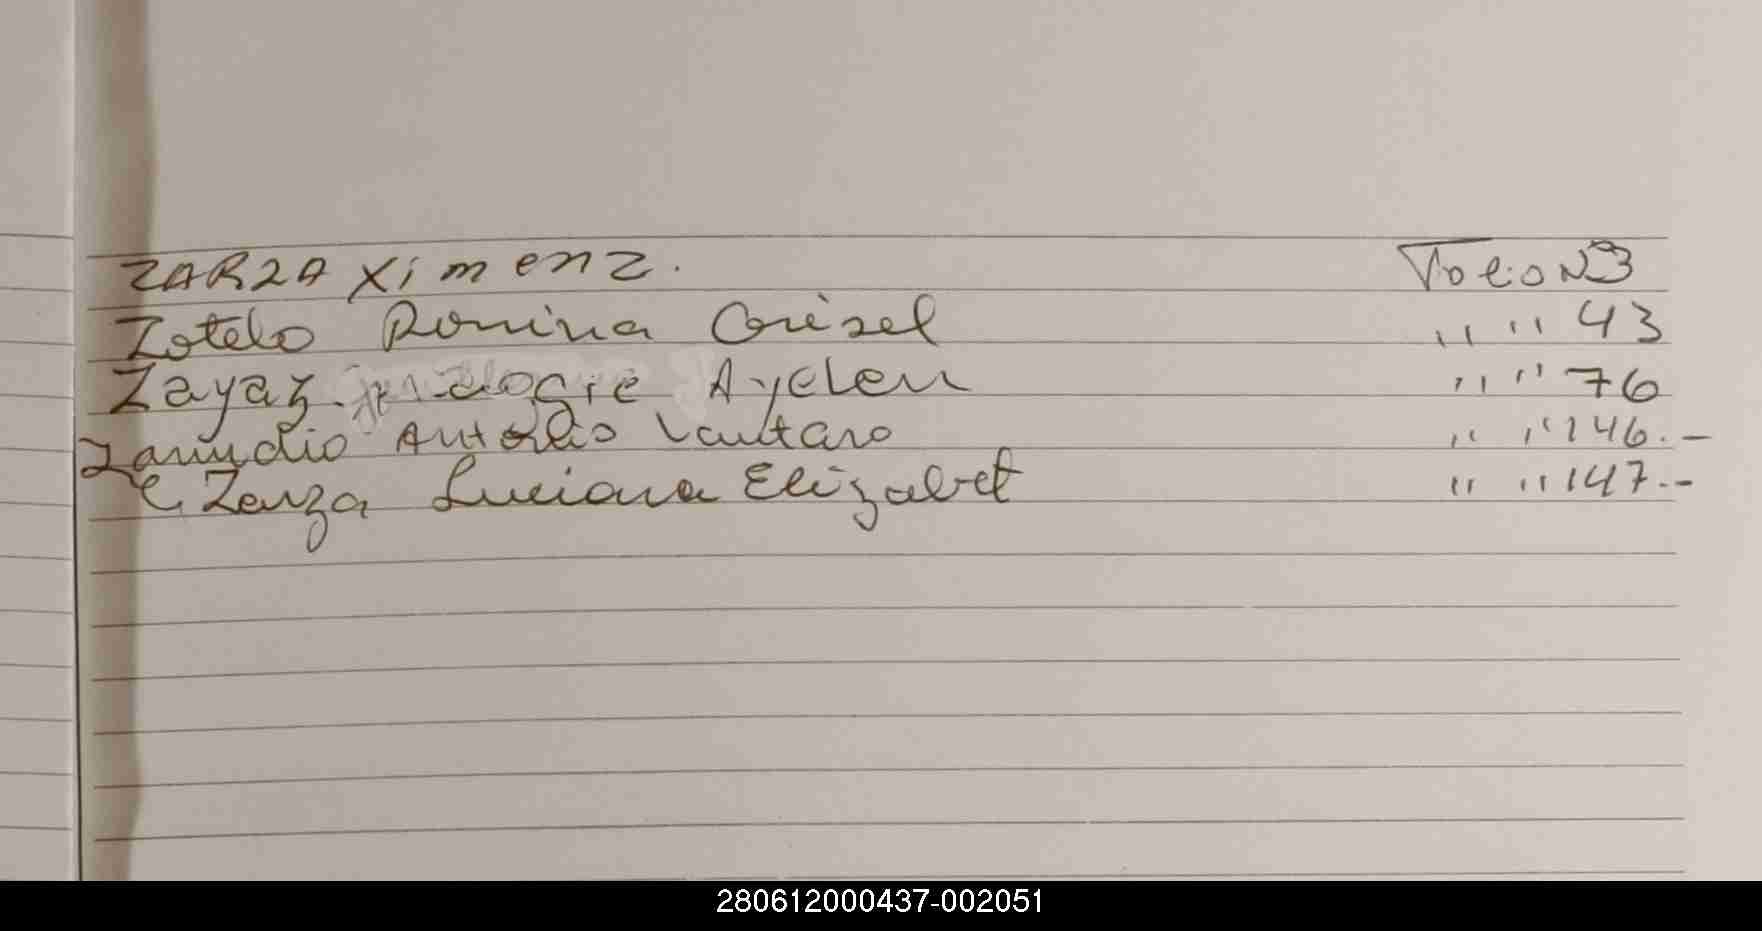 ZARZA Ximenz. Folio N 3
Zotelo Romina Grisel " " 43
Zayaz Ayelen " " 76
Zamudio Antonio Lautaro " " 146.-
Zarza Luciana Elizabet " " 147.-
280612000437-002051